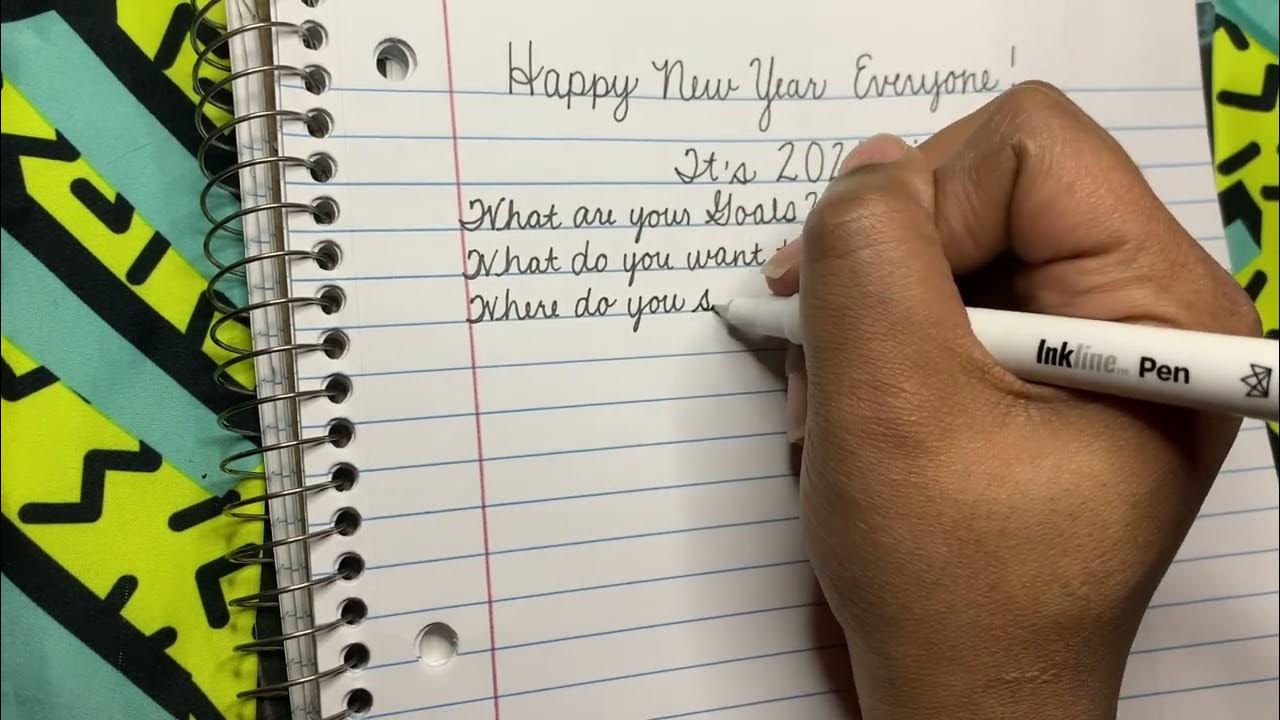 Happy New Year Everyone!
It's 202
What are your Goals?
What do you want
Where do you s
Inkline™ Pen